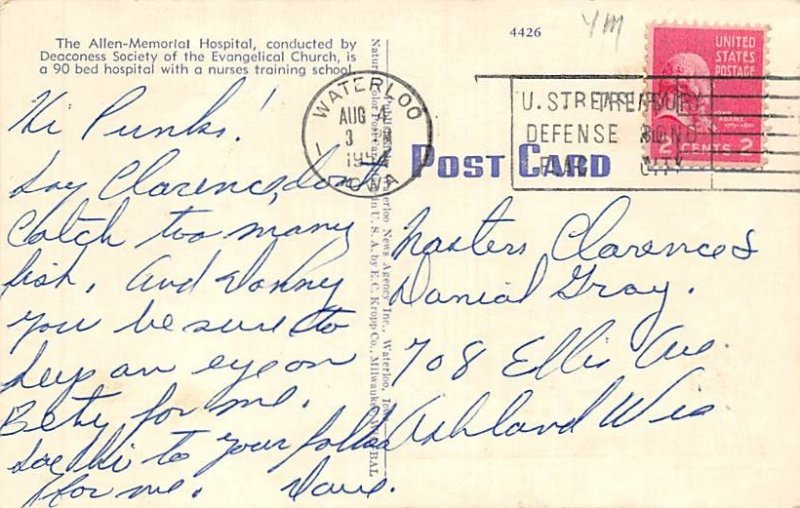 4426
YM
The Allen-Memorial Hospital, conducted by
Deaconess Society of the Evangelical Church, is
a 90 bed hospital with a nurses training school.
UNITED
STATES
POSTAGE
2 CENTS 2
WATERLOO
AUG 4
3 PM
1954
IOWA
U.S. TREASURY
DEFENSE BOND
FLAG CITY
POST CARD
Hi Punks!
Say Clarence, don't
Catch too many
fish. And Danny
you be sure to
keep an eye on
Bety for me.
Say hi to your folks
for me. Dave.
Masters Clarence &
Danial Gray.
708 Ellis Ave.
Ashland Wis
Waterloo News Agency Inc., Waterloo, Iowa
Natural Color Post Card Made in U. S. A. by E. C. Kropp Co., Milwaukee, Wis.